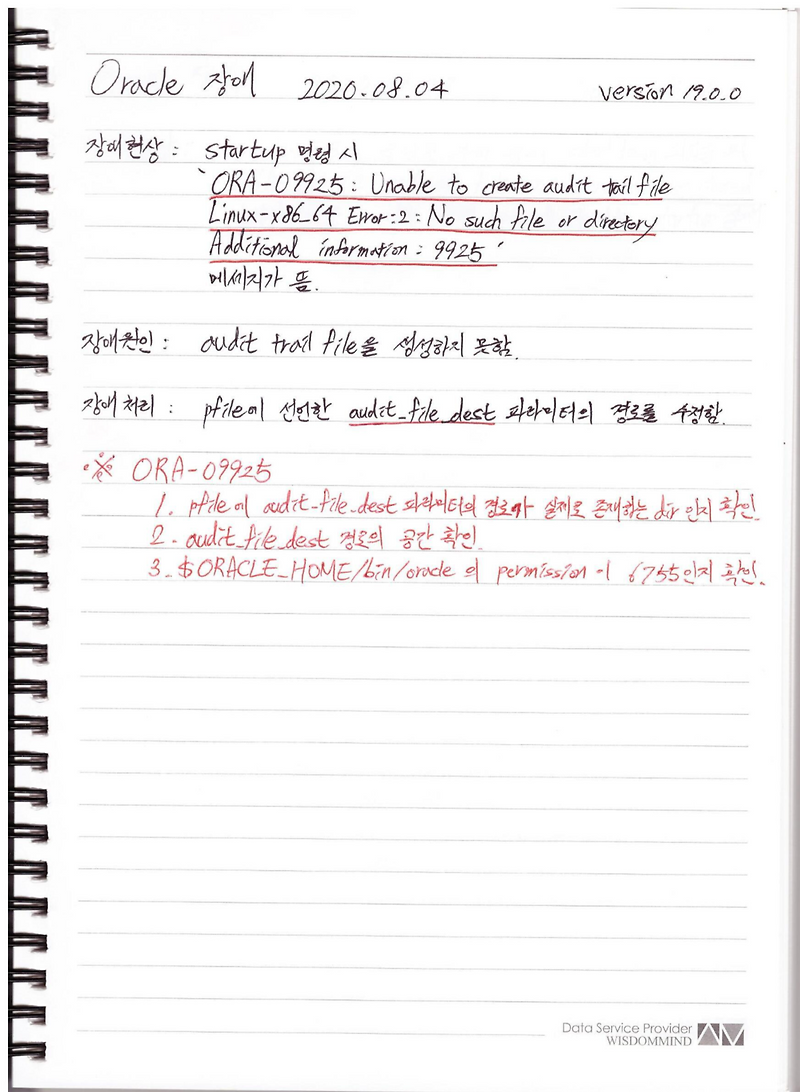 Oracle 장애 2020.08.04 version 19.0.0
장애현상 : startup 명령 시
'ORA-09925 : Unable to create audit trail file
Linux-x86_64 Error : 2 : No such file or directory
Additional information : 9925'
메세지가 뜸.
장애원인 : audit trail file을 생성하지 못함.
장애처리 : pfile에 선언한 audit_file_dest 파라미터의 경로를 수정함.
※ ORA-09925
1. pfile에 audit_file_dest 파라미터의 경로가 실제로 존재하는 dir 인지 확인.
2. audit_file_dest 경로의 공간 확인.
3. $ORACLE_HOME/bin/oracle 의 permission이 6755인지 확인.
Data Service Provider
WISDOMMIND